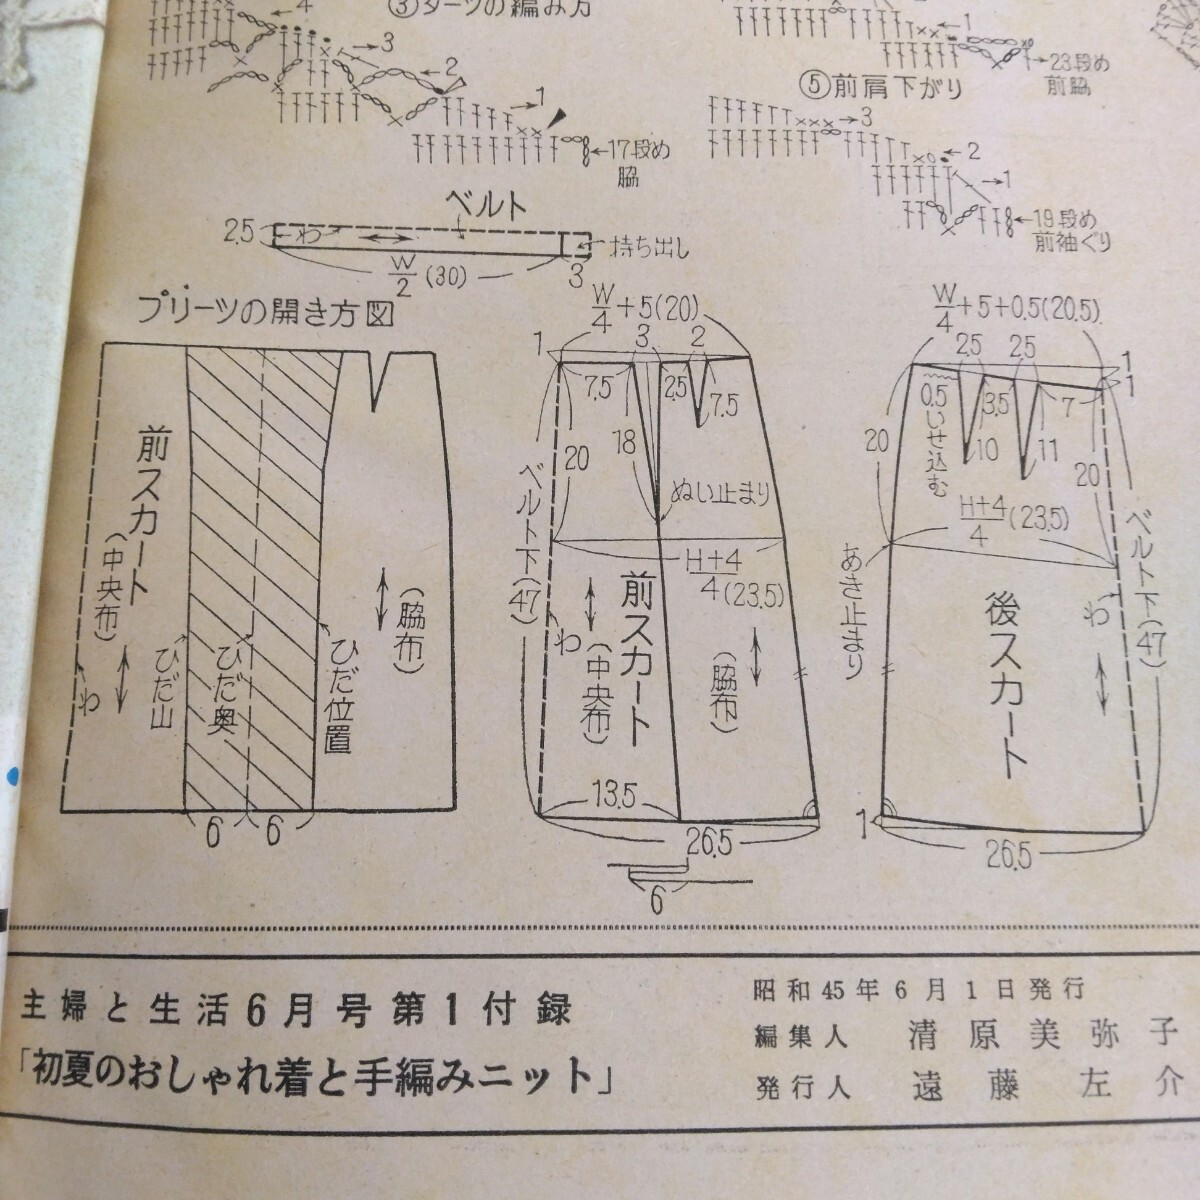 ③ダーツの編み方
4
→3
←2
→1
←17段め
脇
→1
←23段め
前脇
⑤前肩下がり
→3
←2
→1
←19段め
前袖ぐり
ベルト
2.5
わ
持ち出し
W/2 (30)
3
プリーツの開き方図
前スカート
(中央布)
わ
ひだ山
ひだ奥
ひだ位置
(脇布)
6 6
W/4+5(20)
1
3
2
7.5
2.5
7.5
20
18
ぬい止まり
ベルト下(47)
H+4/4 (23.5)
わ
前スカート
(中央布)
(脇布)
13.5
26.5
6
W/4+5+0.5(20.5)
2.5
2.5
1
1
0.5いせ込む
3.5
7
10
11
20
20
H+4/4 (23.5)
あき止まり
ベルト下(47)
わ
後スカート
1
26.5
主婦と生活6月号第1付録
「初夏のおしゃれ着と手編みニット」
昭和45年6月1日発行
編集人 清原美弥子
発行人 遠藤左介